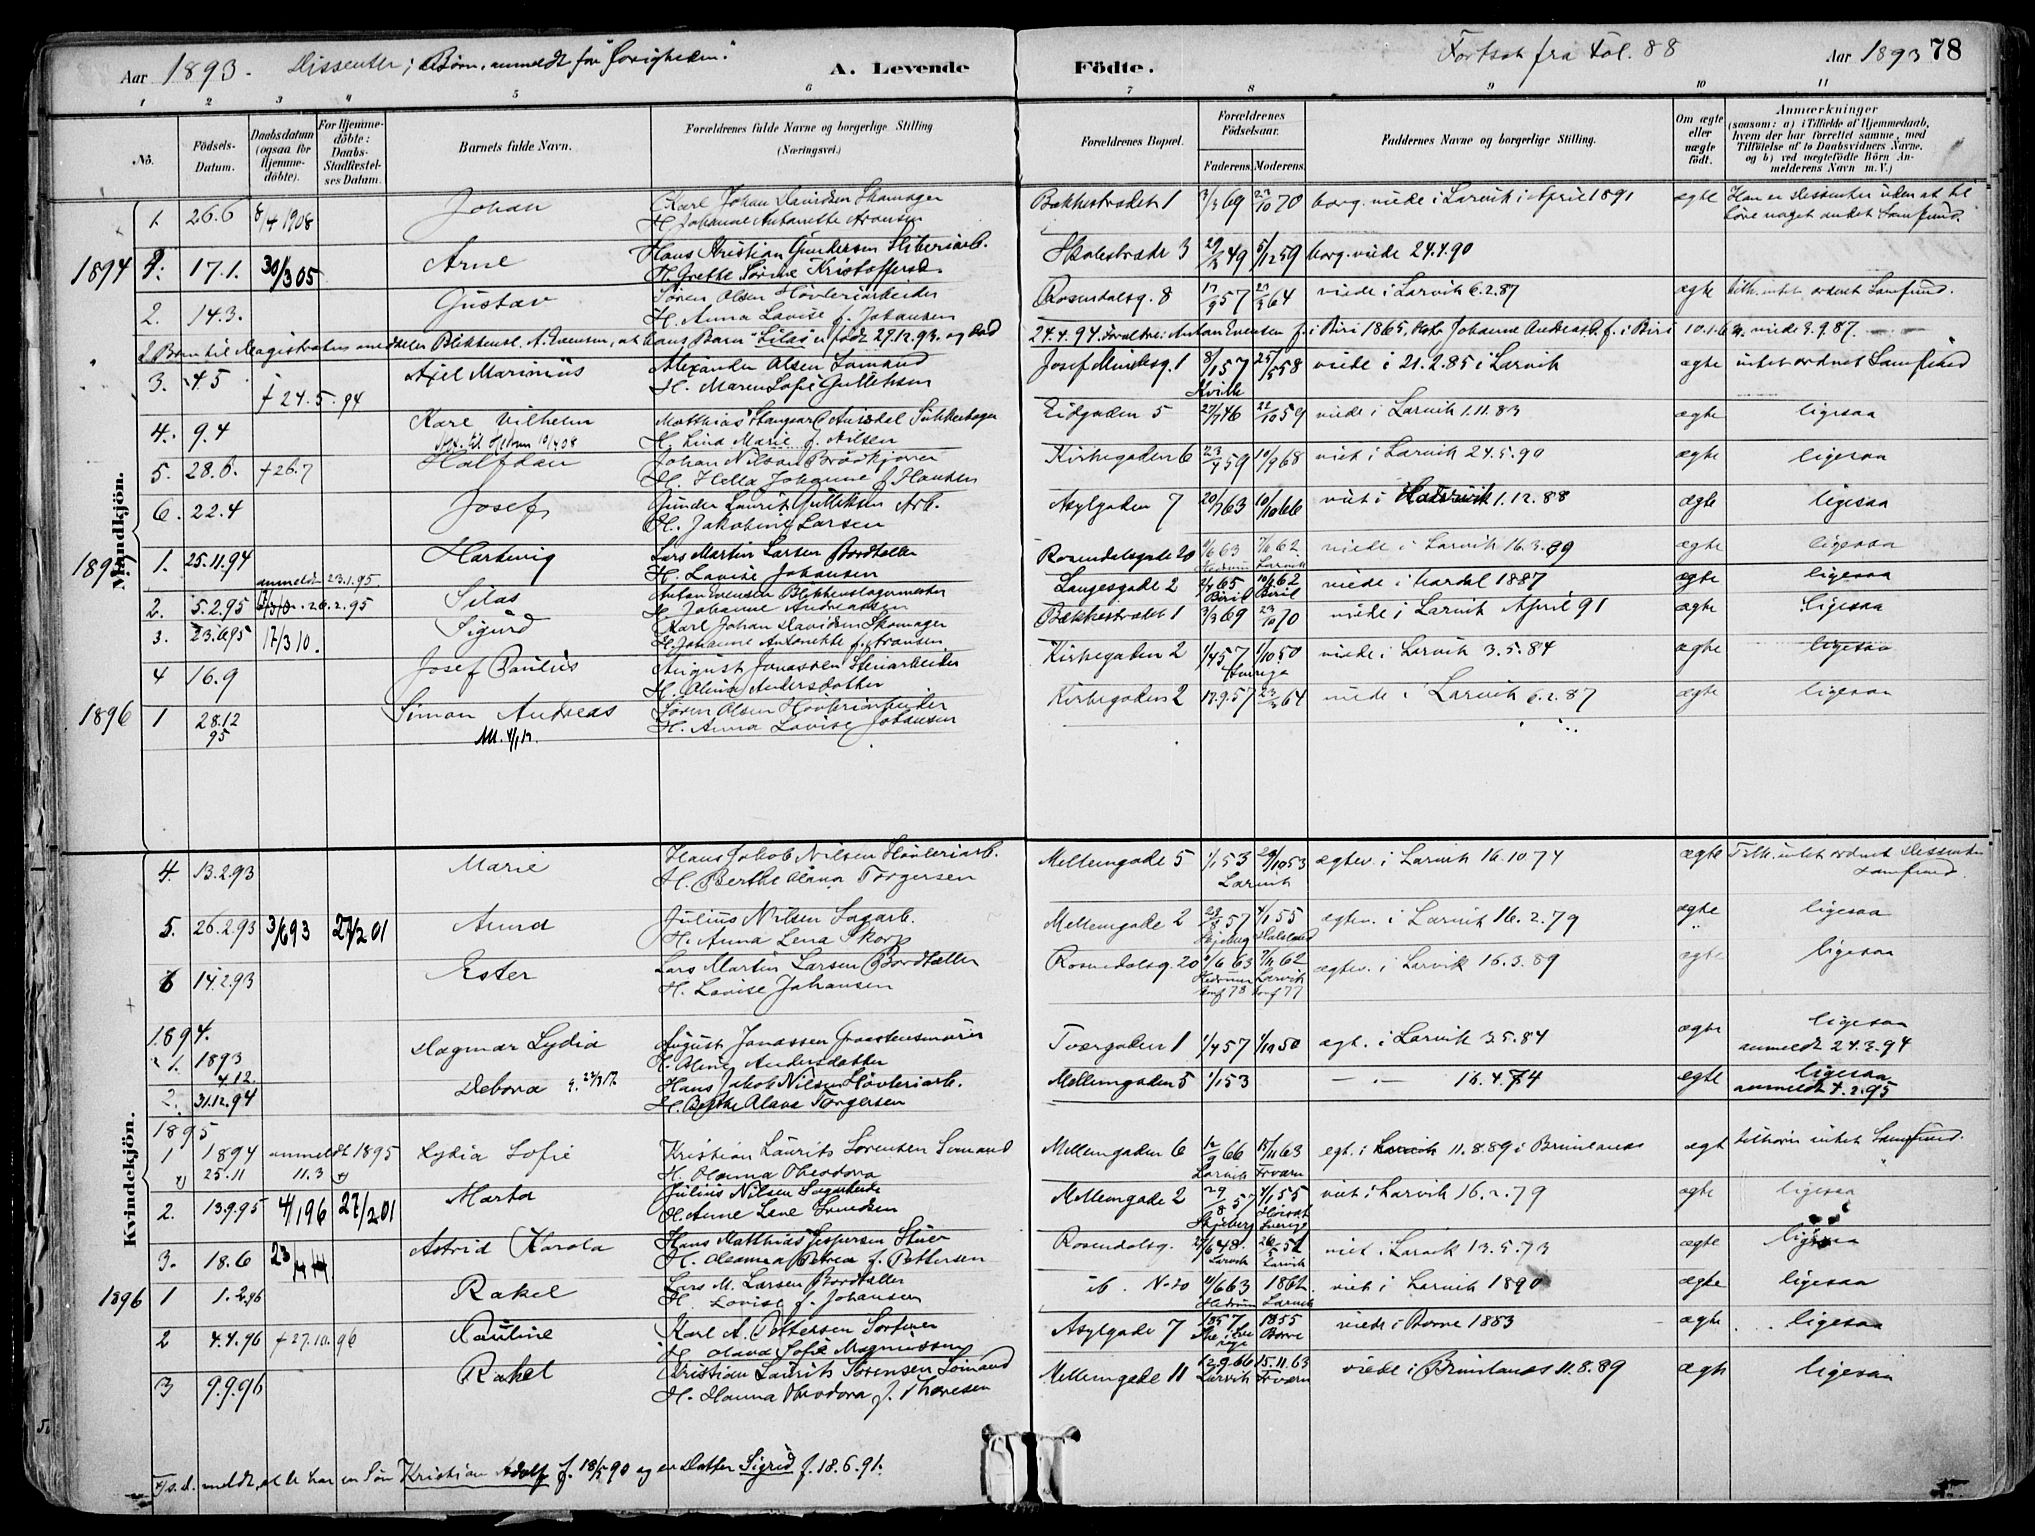 Aar 1893. Dissenter; Børn anmeldt for Øvrigheden. A. Levende Födte. Fortsat fra Fol. 88 Aar 1893 78
1 2 3 4 5 6 7 8 9 10 11
No. Födsels-Datum. Daabsdatum (ogsaa for Hjemme-döbte). For Hjemme-döbte: Daabs-Stadfæstelses Datum. Barnets fulde Navn. Forældrenes fulde Navne og borgerlige Stilling (Næringsvei.) Forældrenes Bopæl. Forældrenes Födselsaar. Faderens Moderens Faddernes Navne og borgerlige Stilling. Om ægte eller uægte födt. Anmærkninger (saasom: a) i Tilfælde af Hjemmedaab, hvem der har forrettet samme, med Tilföielse af to Daabsvidners Navne, og b) ved uægtefödte Börn Anmelderens Navn m. V.)
Mandkjön.
1. 26.6 8/4 1908 Johan Karl Johan Davidsen Skomager Bakkestrædet 1 3/3 69 23/10 70 borg. viede i Larvik i April 1891 ægte Han er Dissenter uden at til
H. Johanne Antonette Aronsen høre noget andet Samfund.
1894 1. 17.1. 30/3 05 Arne Hans Kristian Gundersen Sliberiarb. Skolestræde 3 29/ 49 5/12 59 borg. viede 24.4.90
H. Grethe Sørine Kristoffersd.
2. 14.3. Gustav Søren Olsen Høvleriarbeider Rosendalsg. 8 17/9 57 23/3 64 viede i Larvik 6.2.87 ægte tilh. intet ordnet Samfund.
H. Anna Lovise f. Johansen
Børn til Magistraten anmelder Blikkensl. A. Evensen, at hans Barn "Silas" er født 27.12.93 og død 24.4.94 Forældre: Anton Evensen f. i Biri 1865, Johanne Andreasd. f. i Biri 10.1.62. viede 8.9.87.
3. 4.5 † 24.5.94 Axel Marinius Alexander Olsen Sømand Josef Mindesg. 1 8/1 57 25/5 58 viede i 21.2.85 i Larvik ægte intet ordnet Samfund
H. Maren Sofie Gulliksen Kville
4. 9.4 Karl Vilhelm Matthias Sukkerbager Eidgaden 5 27/7 46 22/10 59 viede i Larvik 1.11.83 ægte ligesaa
H. Lina Marie f. Nilsen
5. 28.6. † 26.7 Halfdan Johan Nilsen Brødkjører Kirkegaden 6 23/4 59 10/9 68 viet i Larvik 24.5.90 ægte ligesaa
H. Hella Johanne f. Hansen
6. 22.4 Josef Gunder Laurits Gulliksen Arb. Asylgaden 7 20/7 63 10/10 66 viet i Larvik 1.12.88 ægte ligesaa
H. Jakobine Larsen
1895 1. 25.11.94 Hartvig Lars Martin Larsen Bordtæller Rosendalsgade 20 /6 63 7/11 62 viede i Larvik 16.3.89 ægte ligesaa
anmeldt 23.1.95. H. Lovise Johansen Hedrum Larvik
2. 5.2.95 26.2.95 Silas Anton Evensen Blikkenslagermester Langesgade 2 2/7 65 10/1 62 viede i Aardal 1887 ægte ligesaa
H. Johanne Andreassen Biri Biri
3. 23.6.95 17/3 10. Sigurd Karl Johan Davidsen Skomager Bakkestrædet 1 3/3 69 23/10 70 viede i Larvik April 91 ægte ligesaa
H. Johanne Antonette f. Aronsen
4 16.9 Josef Paulus August Jonassen Stenarbeider Kirkegaden 2 1/4 57 1/10 50 viede i Larvik 3.5.84 ægte ligesaa
H. Olina Andersdatter Sverige
1896 1 28.12 95 Simon Andreas Søren Olsen Høvleriarbeider Kirkegaden 2 17.9.57 23/3 64 viede i Larvik 6.2.87 ægte ligesaa
H. Anna Lovise Johansen
Kvindekjön.
4. 13.2.93 Marie Hans Jakob Nilsen Høvleriarb. Mellemgade 5 1/1 53 29/10 53 ægtev. i Larvik 16.10.74 ægte Tilh. intet ordnet Dissenter
H. Berthe Olava Torgersen Larvik Samfund.
5. 26.2.93 3/6 93 27/2 01 Anna Julius Nilsen Sagarb. Mellemgade 2 29/8 57 4/1 55 ægtev. i Larvik 16.2.79 ægte ligesaa
H. Anna Lena Skjeberg Halstad
6 14.2.93 Ester Lars Martin Larsen Bordtæller Rosendalsg. 20 /6 63 7/11 62 ægtev. i Larvik 16.3.89 ægte ligesaa
H. Lovise Johansen Hedrum Larvik konf 78 konf 77
1894.
1. 1893 4.12. Dagmar Lydia August Jonassen Graastensmurer Tværgaden 1 1/4 57 1/10 50 ægt. i Larvik 3.5.84 ægte ligesaa
H. Oline Andersdatter anmeldt 24.3.94
2. 31.12.94 Debora Hans Jakob Nilsen Høvleriarb. Mellemgaden 5 1/1 53 16.4.74 ægte ligesaa
H. Berthe Olava Torgersen anmeldt 4.2.95
1895
1 1894 25.11 anmeldt 1895 11.3 Lydia Sofie Kristian Laurits Sørensen Sømand Mellemgaden 6 12/9 66 15/11 63 ægt. i Larvik 11.8.89 i Brunlanæs ægt tilhører intet Samfund.
H. Hanna Theodora Larvik Frværn
2. 13.9.95 4/1 96 27/2 01 Marta Julius Nilsen Sagarbeide Mellemgade 2 29/8 57 4/1 55 viet i Larvik 16.2.79 ægte ligesaa
H. Anne Lene Svendsen Skjeberg Sverige
3. 18.6 Astrid Karola Hans Matthias Jespersen Stuer Rosendalsg. 27/6 48. 26/5 52 viet i Larvik 13.5.73 ægte ligesaa
H. Petrea f. Pettersen Larvik Larvik
1896 1 1.2.96 Rakel Lars M. Larsen Bordtæller ib. No 20 /6 63 1862 viet i Larvik 1890 ægte ligesaa
H. Lovise f. Johansen Hedrum Larvik
2 4.4.96 † 27.10.96 Pauline Karl A. Pettersen Asylgade 7 1857 1855 viede i Borre 1883 ægte ligesaa
H. Olava Sofie Magnussen Borre
3 9.9.96 Rakel Kristian Laurits Sørensen Sømand Mellemgade 11 12.9.66 15.11.63 viede i Brunlanæs 11.8.89 ægte ligesaa
H. Hanna Theodora f. Thoresen Larvik Frværn
*) s.d. meldt, at de har en Søn Kristian Adolf f. 18/5 90 og en Datter Sigrid f. 18.6.91.